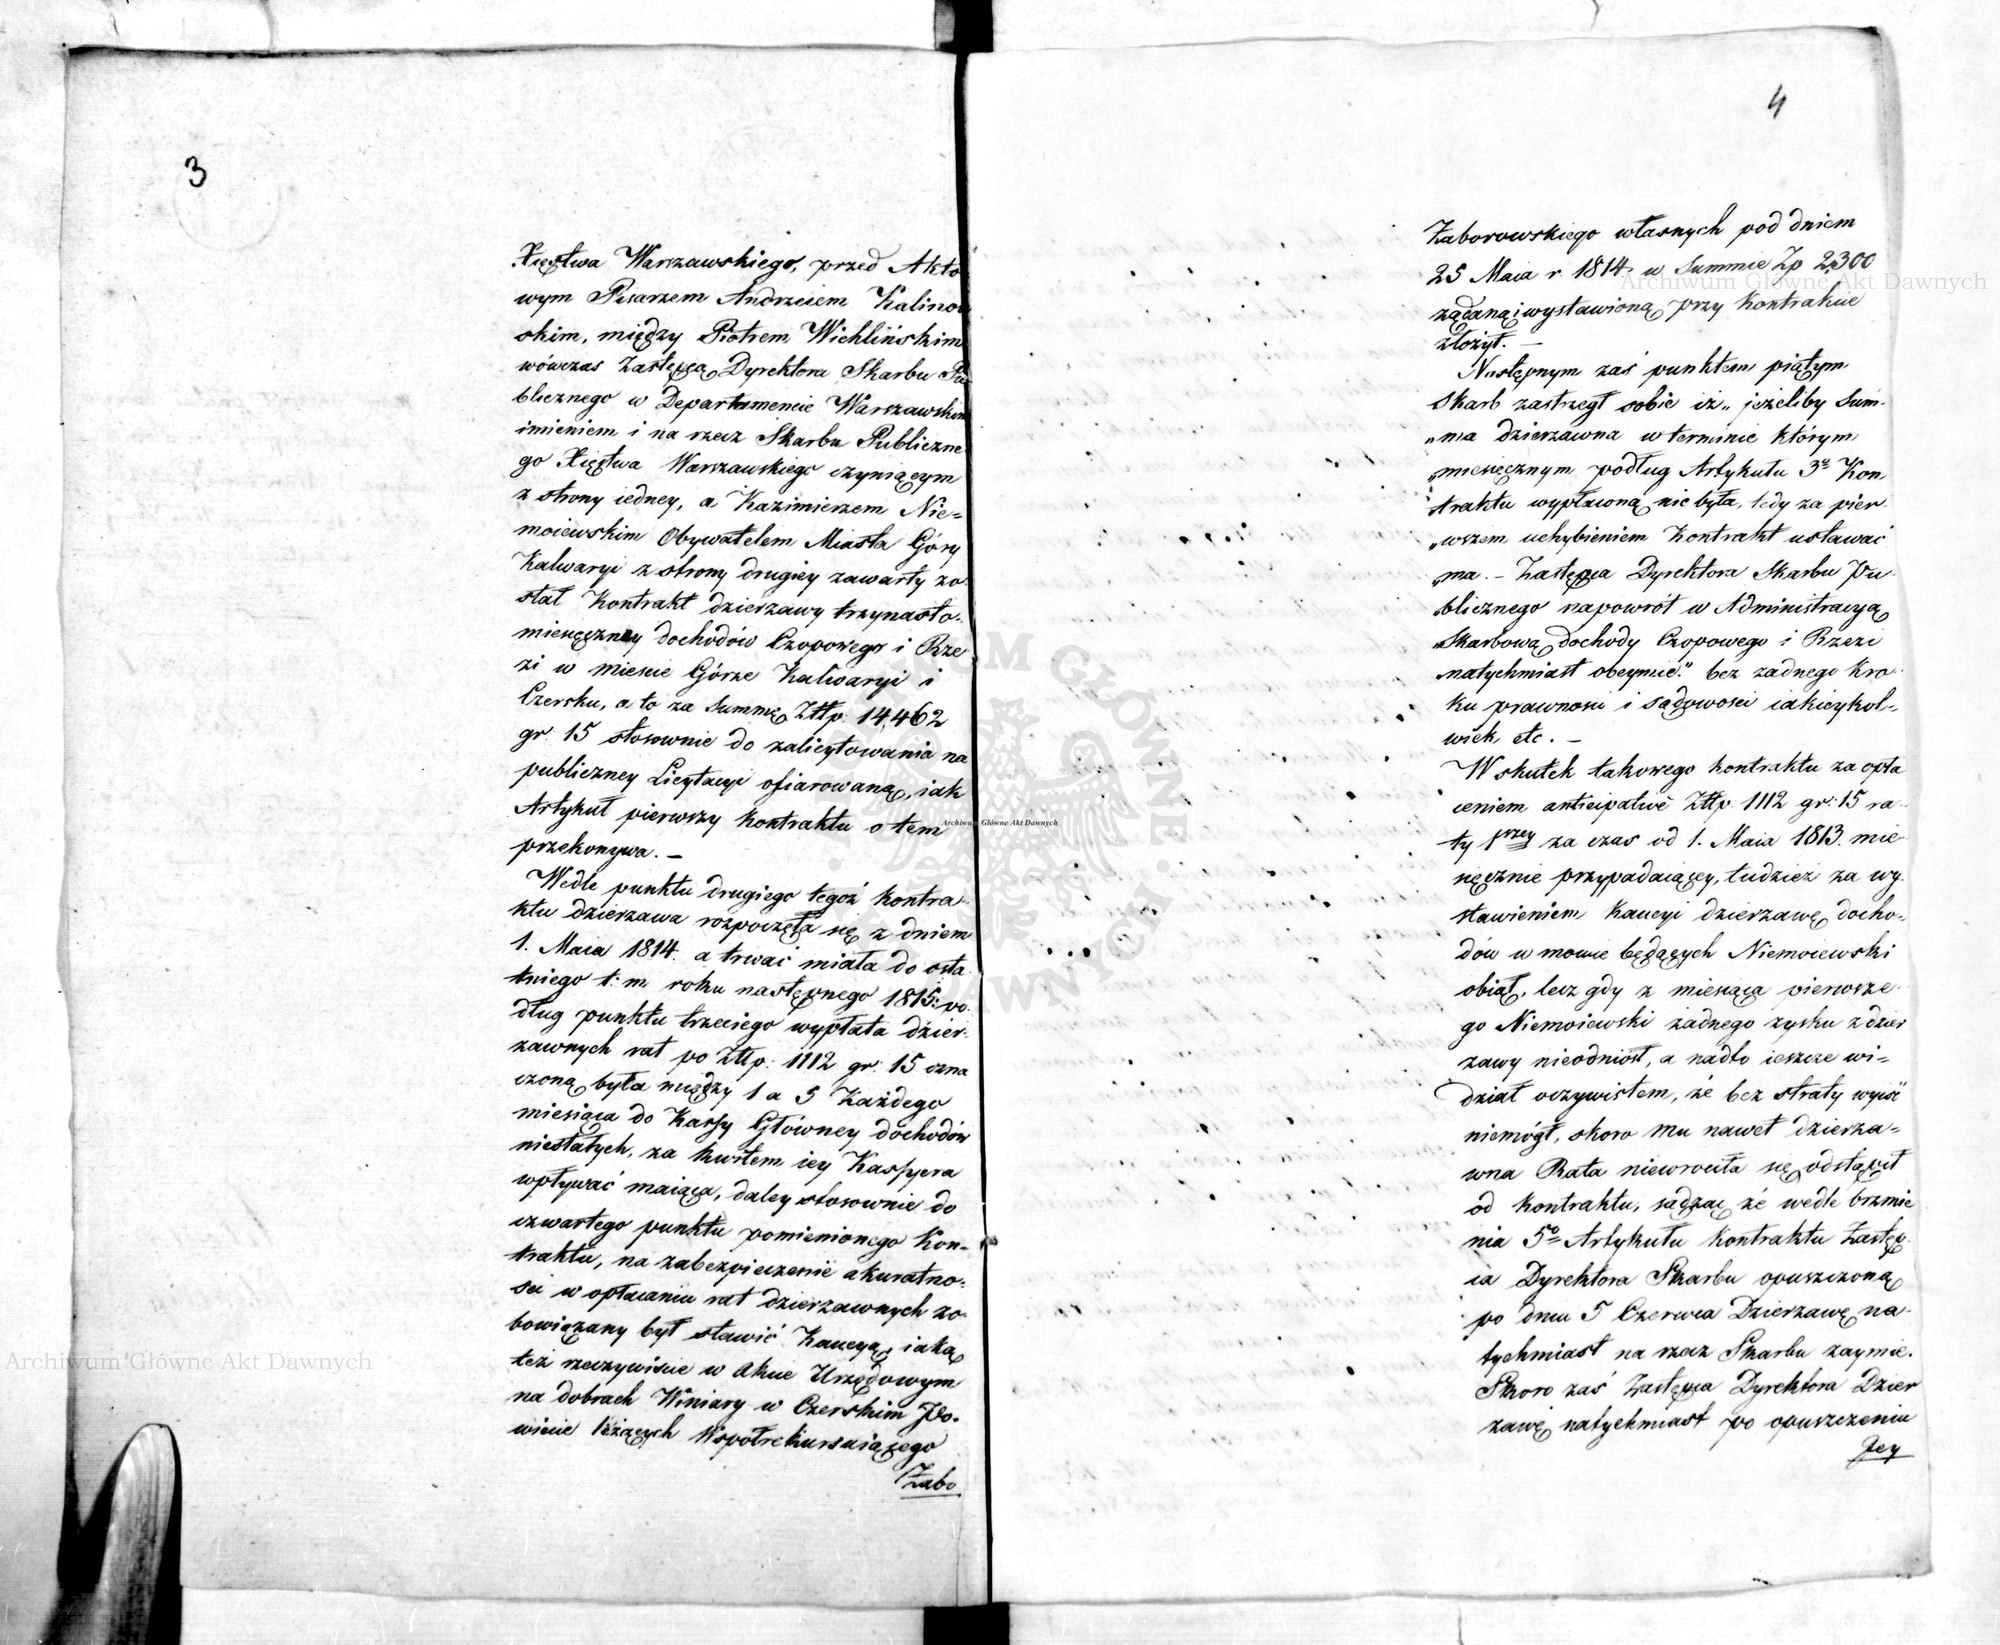 3
Xięstwa Warszawskiego, przed Akto
wym Pisarzem Andrzeiem Kalinow
skim, między Piotrem Wichlińskim
wówczas Zastępcą Dyrektora Skarbu Pu
blicznego w Departamencie Warszawskim
imieniem i na rzecz Skarbu Publiczne
go Xięstwa Warszawskiego czyniącym
z strony iedney, a Kazimierzem Nie=
moiewskim Obywatelem Miasta Góry
Kalwaryi z strony drugiey zawarty zo
stał Kontrakt dzierzawy trzynasto-
miesięczney dochodów Czopowego i Rze
zi w mieście Górze Kalwaryi i
Czersku, a to za Summę Złłp. 14,462
gr. 15 stosownie do zalicytowania na
publiczney Licytacyi ofiarowaną, iak
Artykuł pierwszy Kontraktu o tem
przekonywa. –
Wedle punktu drugiego tegoż Kontra-
ktu dzierzawa rozpoczęła się z dniem
1. Maia 1814. a trwać miała do osta
tniego t: m. roku następnego 1815: po
dług punktu trzeciego wypłata dzier-
zawnych rat po Złłp: 1112 gr: 15 ozna
czoną była między 1 a 5 Każdego
miesiąca do Kassy Główney dochodów
niestałych, za kwitem iey Kassyera
wpływać maiąca, daley stosownie do
czwartego punktu pomienionego Kon-
traktu, na zabezpieczenie akuratno-
ści w opłacaniu rat dzierzawnych zo-
bowiązany był stawić Kaucyą, iaką
też rzeczywiście w Akcie Urzędowym
na dobrach Winiary w Czerskim Po-
wiecie leżących Współrekursuiącego
Zabo
4
Zaborowskiego własnych pod dniem
25 Maia r. 1814. w Summie Zp 2,300
żądaną i wystawioną przy Kontrakcie
złożył. –
Następnym zaś punktem piątym
Skarb zastrzegł sobie iż „ jeżeliby Sum-
„ma dzierzawna w terminie którym
„miesięcznym podług Artykułu 3º Kon
traktu wypłaconą nie była, tedy za pier
„wszem uchybieniem Kontrakt ustawać
„ma. – Zastępca Dyrektora Skarbu Pu
blicznego napowrót w Administracyą
Skarbową dochody Czopowego i Rzezi
natychmiast obeymie." bez żadnego Kro-
ku prawności i sądowości iakieykol-
wiek etc. –
W skutek takowego Kontraktu za opła
ceniem anticipative Złłp. 1112 gr: 15 ra-
ty przez za czas od 1. Maia 1813. mie
sięcznie przypadaiącey, tudzież za wy-
stawieniem Kaucyi dzierzawę docho-
dów w mowie będących Niemoiewski
obiął, lecz gdy z miesiąca pierwsze-
go Niemoiewski żadnego zysku z dzier
zawy nieodniósł, a nadto ieszcze wi-
dział oczywistem, że bez straty wyiść
niemógł, skoro mu nawet dzierza=
wna Rata niewrociła się odstąpił
od Kontraktu, sądząc że wedle brzmie
nia 5º Artykułu Kontraktu Zastęp-
ca Dyrektora Skarbu opuszczoną
po dniu 5 Czerwca Dzierzawę na-
tychmiast na rzecz Skarbu zaymie.
Skoro zaś Zastępca Dyrektora Dzier
zawę natychmiast po opuszczeniu
Jey
Archiwum Główne Akt Dawnych
Archiwum Główne Akt Dawnych
Archiwum Główne Akt Dawnych